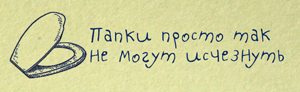 Папки просто так
не могут исчезнуть